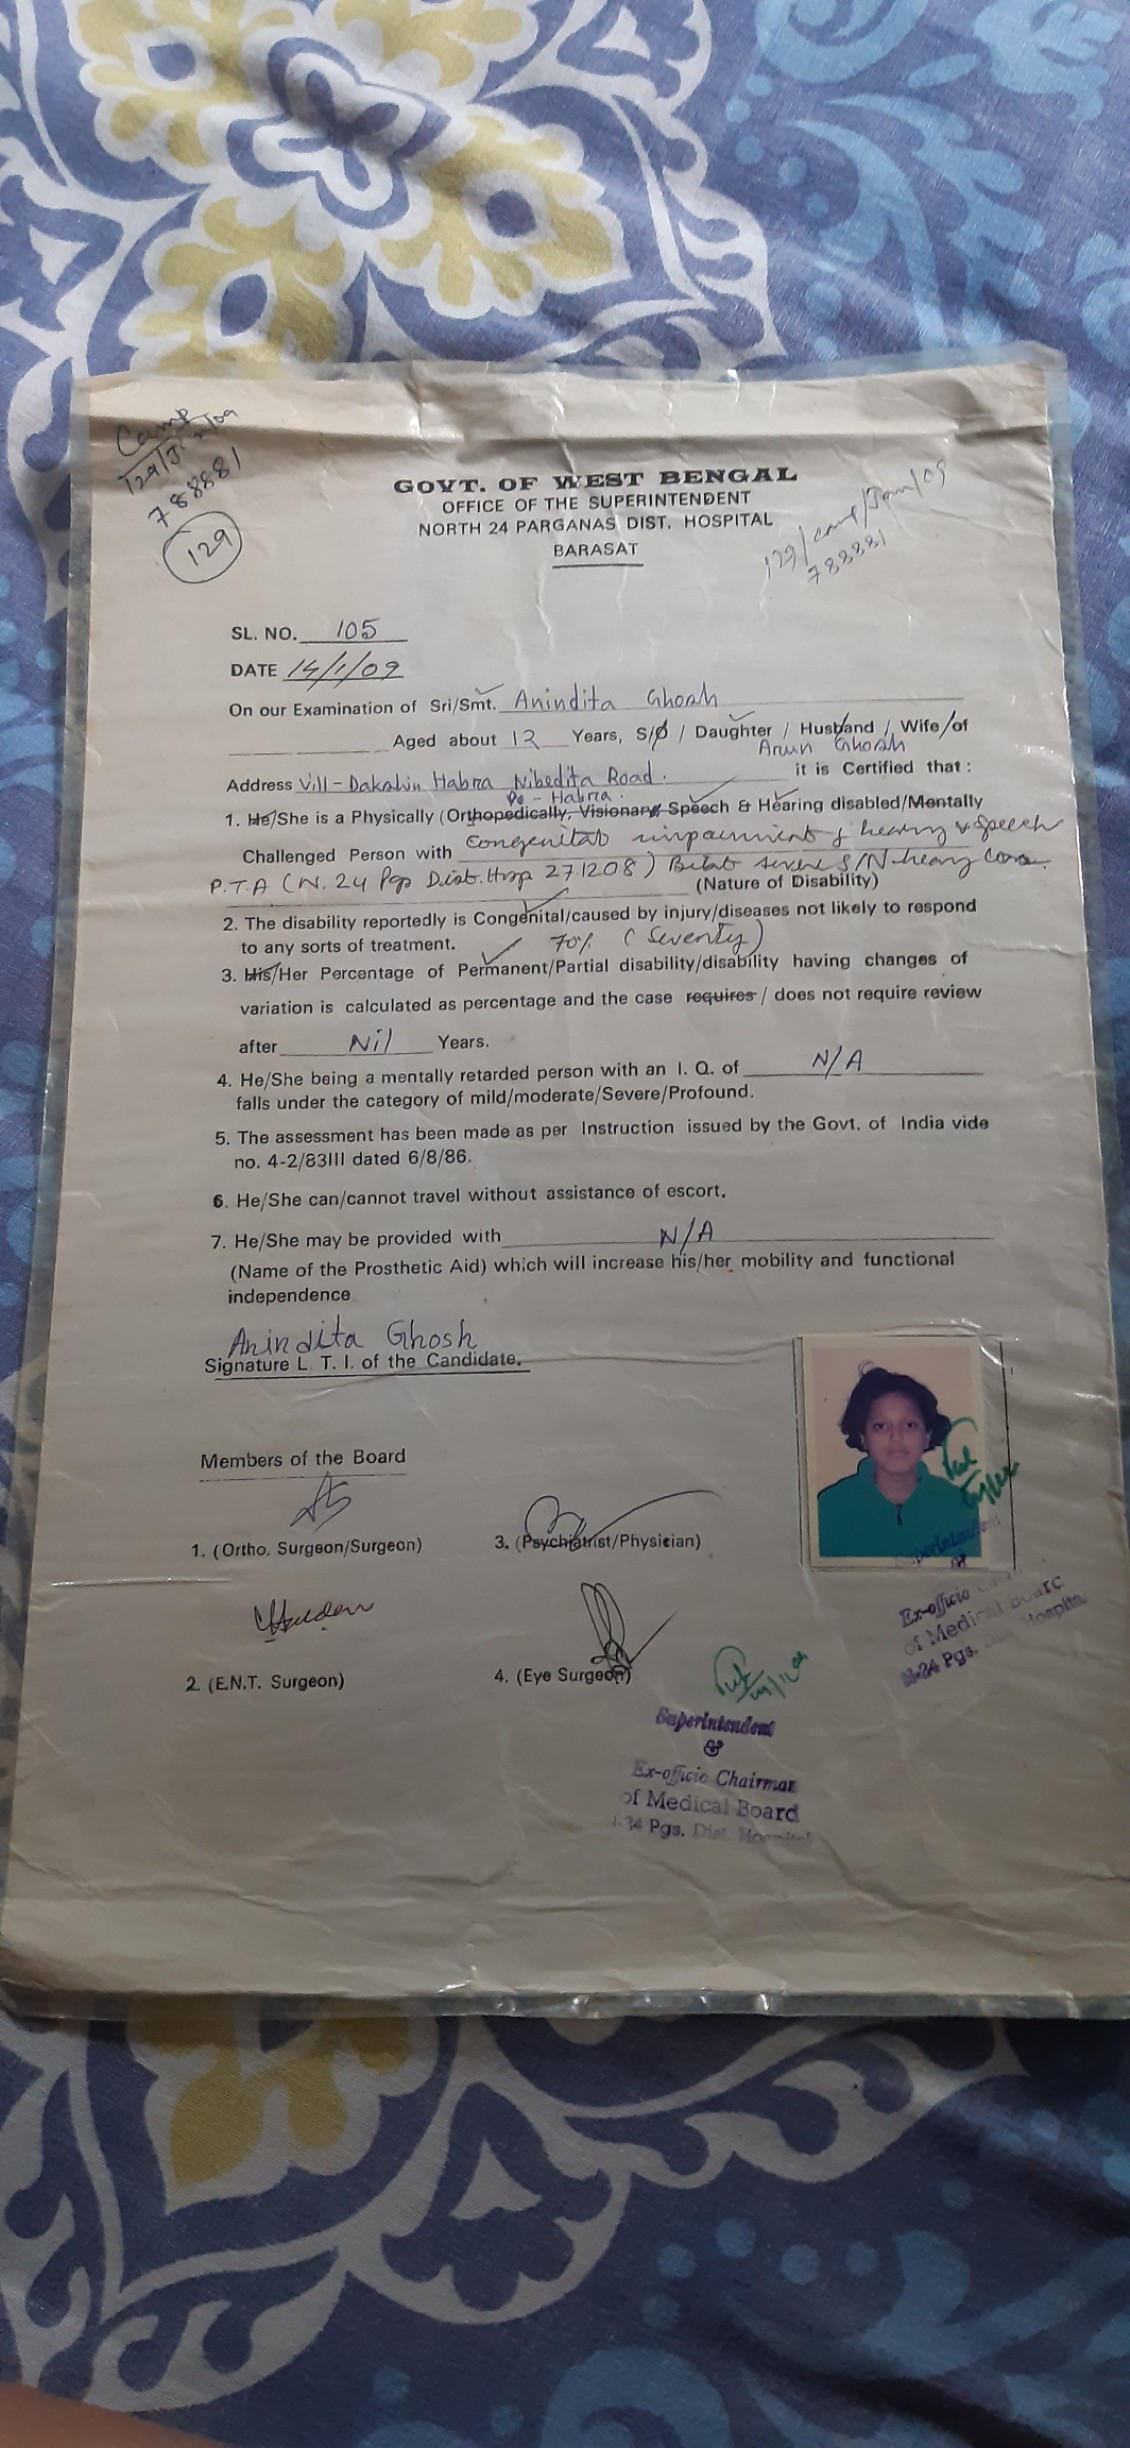 Camp
129/J
788881
129
129/Camp/Jan/09
788881
GOVT. OF WEST BENGAL
OFFICE OF THE SUPERINTENDENT
NORTH 24 PARGANAS DIST. HOSPITAL
BARASAT
SL. NO. 105
DATE 14/1/09
On our Examination of Sri/Smt. Anindita Ghosh
Aged about 12 Years, S/O / Daughter / Husband / Wife/of
Arun Ghosh
Address Vill - Dakshin Habra Nibedita Road. it is Certified that :
Po - Habra.
1. He/She is a Physically (Orthopedically, Visionary, Speech & Hearing disabled/Mentally
Challenged Person with Congenital impairment of hearing & Speech
P.T.A (N. 24 Pgs Dist. Hosp 271208) Bilat severe S/N hearing loss.
(Nature of Disability)
2. The disability reportedly is Congenital/caused by injury/diseases not likely to respond
to any sorts of treatment. 70% (Seventy)
3. His/Her Percentage of Permanent/Partial disability/disability having changes of
variation is calculated as percentage and the case requires / does not require review
after Nil Years.
4. He/She being a mentally retarded person with an I. Q. of N/A
falls under the category of mild/moderate/Severe/Profound.
5. The assessment has been made as per Instruction issued by the Govt. of India vide
no. 4-2/83III dated 6/8/86.
6. He/She can/cannot travel without assistance of escort.
7. He/She may be provided with N/A
(Name of the Prosthetic Aid) which will increase his/her mobility and functional
independence
Anindita Ghosh
Signature L. T. I. of the Candidate.
Members of the Board
1. (Ortho. Surgeon/Surgeon)
3. (Psychiatrist/Physician)
2. (E.N.T. Surgeon)
4. (Eye Surgeon)
Superintendent
&
Ex-officio
of Medical Board
N-24 Pgs. Dist. Hospital
Superintendent
&
Ex-officio Chairman
of Medical Board
24 Pgs. Dist. Hospital